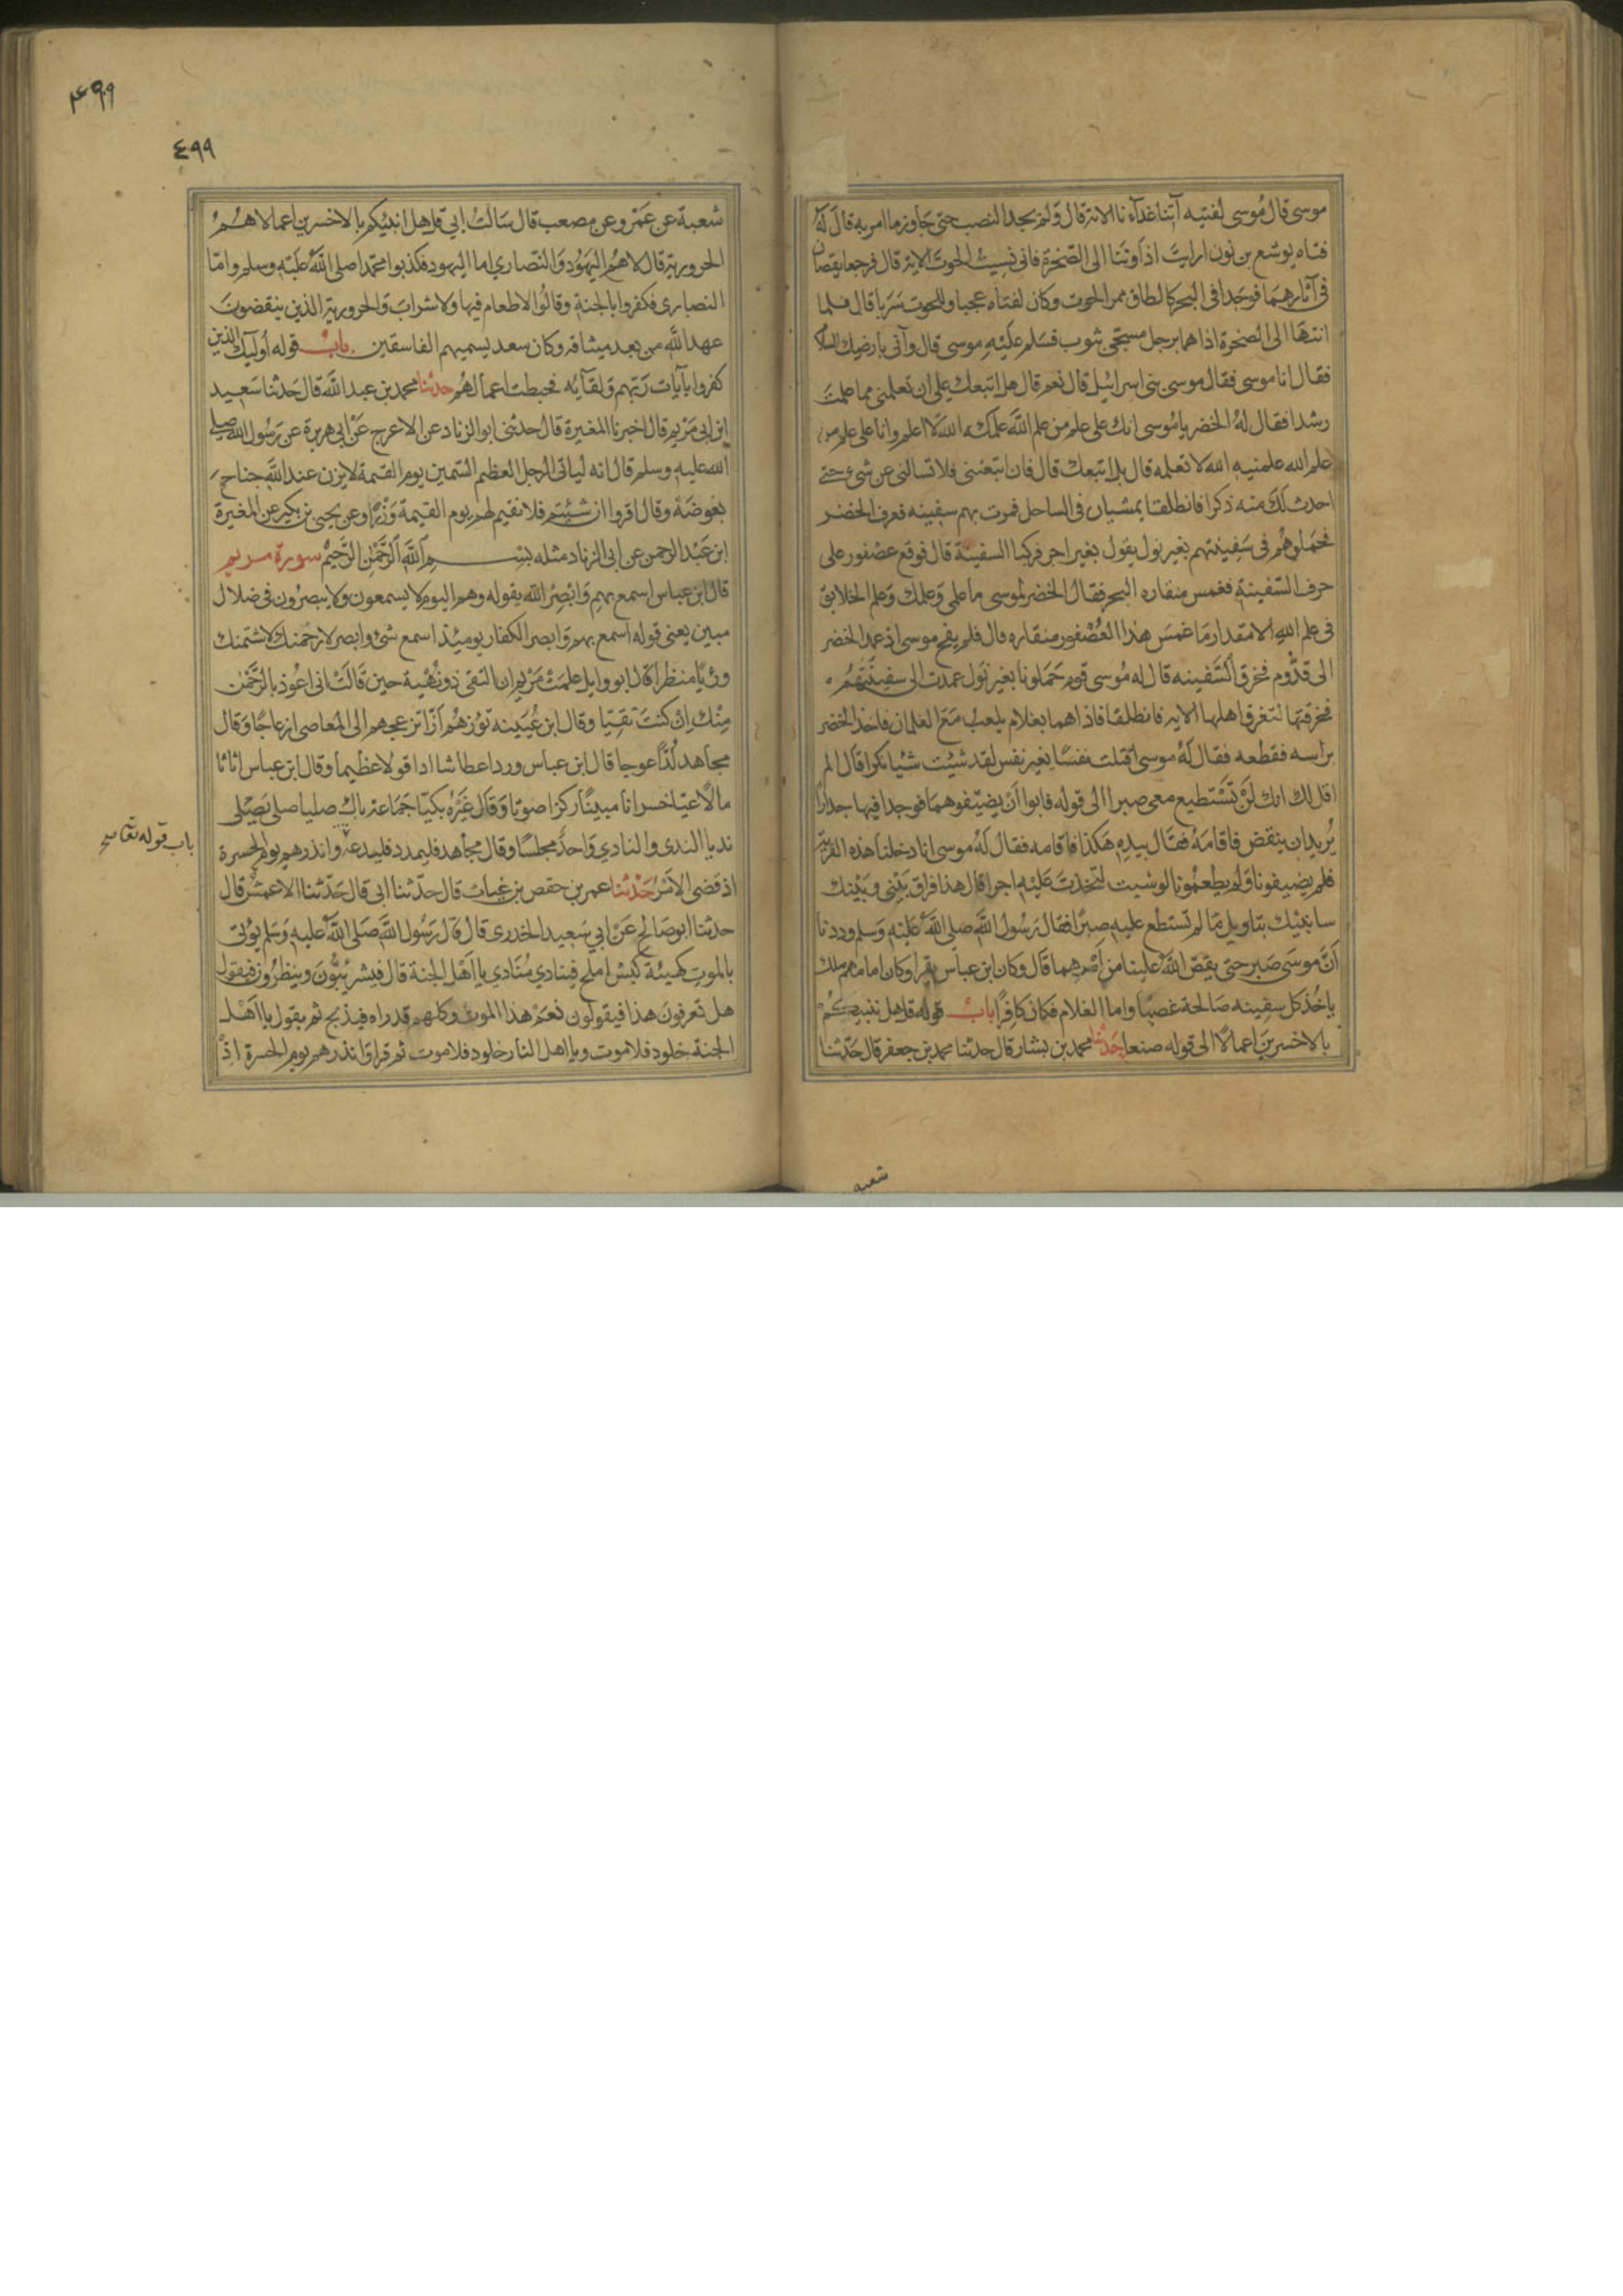 موسى قال مُوسى لفتيه آتنا غداءنا الاية قال ولم يجد النصب حتى جاوز ما امر به قال له
فتاه يوشع بن نون ارايت اذ اوينا الى الصّخرة فانى نسيت الحوت الاية قال فرجعا يقصان
فى آثارهما فوجدا فى البحر كالطاق ممر الحوت وكان لفتاه عجبا وللحوت سربا قال فلما
انتها الى الصخرة اذا هما برجل مسجّى بثوب فسَلم عليه موسى قال وآنى بارضك السلام
فقال انا موسى فقال موسى بنى اسرائيل قال نعم قال هل اتبعك على ان تعلمنى مما علمت
رشدا فقال له الخضر يا مُوسى انك على علم من علم الله علمكه الله لا اعلمه وانا على علم من
علم الله علمنيه الله لا تعلمه قال بل اتبعك قال فان اتبعتنى فلا تسالنى عن شىء حتى
احدث لك منه ذكرا فانطلقا يمشيان فى الساحل فمرت بهم سفينه فعرف الخضر
فحملوهم فى سفينتهم بغير نول يقول بغير اجر فركبا السفينة قال فوقع عصفور على
حرف السّفينة فغمس منقاره البحر فقال الخضر لموسى ما علمى وعلمك وعلم الخلايق
فى علم الله الا مقدار ما غمس هذا العُصْفور منقاره قال فلم يفج موسى اذ عمد الخضر
الى قدّوم فخرق السّفينه قال له مُوسى قوم حملونا بغير نول عمدت الى سفينتهم
فخرقتها لتغرق اهلها الايه فانطلقا فاذا هما بغلام يلعب مع الغلمان فاخذ الخضر
براسه فقطعه فقال له موسى اقتلت نفسًا بغير نفس لقد شيئت شيئا نكرا قال الم
اقل لك انك لن تستطيع معى صبرا الى قوله فابوا ان يضيّفوهما فوجدا فيها جدارًا
يُريد ان ينقض فاقامه فقال بيده هكذا فاقامه فقال له موسى انا دخلنا هذه القرية
فلم يضيفونا ولم يطعمُونا لو شيت لتخذت عليه اجرا قال هذا فراق بينى وبينك
سانبئك بتاويل ما لم تستطع عليه صبرًا فقال رسُول الله صلى الله عليه وسلم وددنا
انّ موسَى صبر حتى يقصّ الله علينا من امرهما قال وكان ابن عباس يقرا وكان امامهم ملك
ياخُذ كل سفينه صَالحة غصبًا واما الغلام فكان كافِرًا باب قوله قل هل ننبيكم
بالاخسرين اعمالا الى قوله صنعا حدّثنا محمد بن بشار قال حدثنا محمد بن جعفر قال حدّثنا
شعبه
٤٩٩
٤٩٩
شعبة عن عمرو عن مصعب قال سَالتُ ابي قل هل انبئكم بالاخسرين اعمالا هم
الحرورية قال لا هُم اليهود والنّصاري اما اليهود فكذبوا محمّدا صلى الله عليه وسلم وامّا
النصارى فكفروا بالجنة وقالُوا لا طعام فيها ولا شراب والحرورية الذين ينقضون
عهد الله من بعد ميثاقه وكان سعد يسميهم الفاسقين باب قوله اُوليك الذين
كفروا بآيات ربّهم ولقآئه فحبطت اعمالهم حدثنا محمد بن عبد الله قال حدثنا سَعيد
ابن ابى مريم قال اخبرنا المغيرة قال حدثنى ابو الزناد عن الاعرج عن ابى هريرة عن رسُول الله صلى
الله عليه وسلم قال انه لياتى الرجل العظيم السّمين يوم القيمة لا يزن عند الله جناح
بعوضة وقال اقروا ان شئتم فلا نقيم لهم يوم القيمة وزنًا وعن يحيى بن بكير عن المغيرة
ابن عبد الرحمن عن ابى الزناد مثله بسم الله الرّحمن الرّحيم سورة مريم
قال ابن عباس اسمع بهم وابصر الله يقوله وهم اليوم لا يسمعون ولا يبصرُون فى ضلال
مبين يعنى قوله اسمع بهم وابصر الكفار يوميئذ اسمع شئ وابصر لارجمنك لاشتمنك
ورئيًا منظرا قال ابو وايل علمت مريم ان التقى ذو نُهْية حين قالت انى اعُوذ بالرّحمن
مِنْك ان كنت تقيّا وقال ابن عُيَينه تؤزهُم ازّا تزعجهم الى المعاصى ازعاجًا وقال
مجاهد لُدّا عوجا قال ابن عباس وردا عطاشا اثاثا مالًا ادا قولا عظيما وقال ابن عباس اثاثا
مالًا عتيا خسرانا مبينًا ركزا صوتا وقال غيرُه بكيّا جماعة باك صليا صلى يصْلى
نديا الندى والنادي واحدٌ مجلسًا وقال مجاهد فليمدد فليدعه وانذرهم يوم الحسرة
باب قوله تعالى صح
اذ قضى الامر حدثنا عمر بن حفص بن غياث قال حدّثنا ابى قال حدّثنا الاعمش قال
حدثنا ابو صَالح عن ابي سَعيد الخدرى قال قال رَسُول الله صَلى الله عليه وسَلم يؤتى
بالموت كهيئة كبش املح فينادي مُنَادي يا اهْل الجنة قال فيشرئبّون وينظرُون فيقول
هل تعرفون هذا فيقولون نعم هذا الموت وكلهم قد راه فيذبح ثم يقول يا اهل
الجنة خلود فلا موت ويا اهل النار خلود فلا موت ثم قرا وانذرهم يوم الحسرة اذ